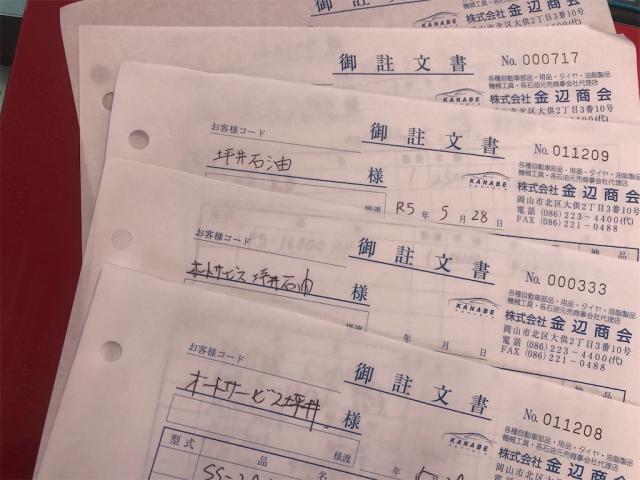 御註文書
KANABE
株式会社 金辺商会
岡山市北区大供2丁目3番10号
御註文書
No. 000717
各種自動車部品・用品・タイヤ・油脂製品
機械工具・各石油元売商事会社代理店
KANABE
株式会社 金辺商会
岡山市北区大供2丁目3番10号
御註文書
No. 011209
お客様コード
坪井石油 様
各種自動車部品・用品・タイヤ・油脂製品
機械工具・各石油元売商事会社代理店
KANABE
株式会社 金辺商会
岡山市北区大供2丁目3番10号
電話 (086)223-4400(代)
FAX (086)221-0488
様渡 R5年 5月 28日
納品
御註文書
No. 000333
お客様コード
オートサービス坪井石油 様
各種自動車部品・用品・タイヤ・油脂製品
機械工具・各石油元売商事会社代理店
KANABE
株式会社 金辺商会
岡山市北区大供2丁目3番10号
電話 (086)223-4400(代)
FAX (086)221-0488
様渡 年 月 日
納品
御註文書
No. 011208
お客様コード
オートサービス坪井 様
各種自動車部品・用品・タイヤ・油脂製品
機械工具・各石油元売商事会社代理店
KANABE
株式会社 金辺商会
岡山市北区大供2丁目3番10号
様渡 年
型式 品名